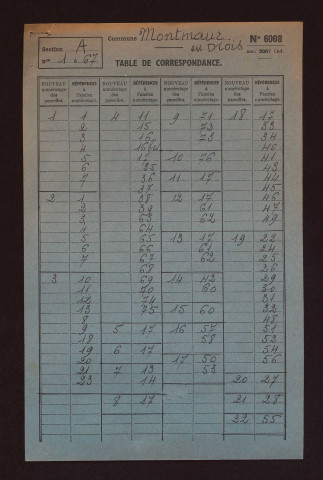 Section A
Commune Montmaur en Diois
N° 6008
nos 1 à 67
TABLE DE CORRESPONDANCE.
NOUVEAU numérotage des parcelles. RÉFÉRENCES à l'ancien numérotage. NOUVEAU numérotage des parcelles. RÉFÉRENCES à l'ancien numérotage. NOUVEAU numérotage des parcelles. RÉFÉRENCES à l'ancien numérotage. NOUVEAU numérotage des parcelles. RÉFÉRENCES à l'ancien numérotage.
1 1 4 11 9 71 18 17
2 15 73 33
3 16 73 34
4 40
5 17 10 76 41
6 35 43
7 36 11 17 44
37 45
2 1 38 12 17 46
2 39 61 47
3 63 62 49
4 64
5 65 13 17 19 22
6 66 61 24
7 67 62 25
68 26
3 10 69 14 42 29
11 70 60 30
12 74 31
13 75 15 60 32
8 48
9 5 17 16 57 51
18 58 53
19 6 17 54
20 17 50 56
21 7 13 53
23 14 20 27
8 17 21 28
22 55